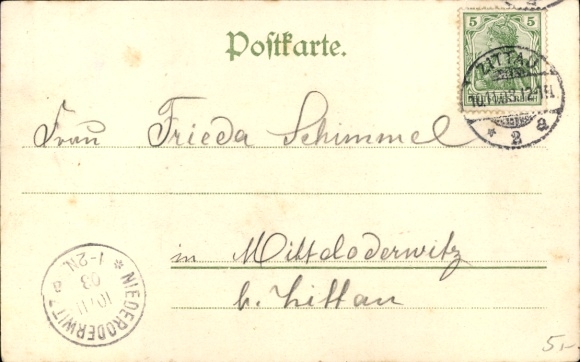 Postkarte.
5 5
ZITTAU
10.11.03.12-1N.
* 2 a
Frau Frieda Schimmel
in Mittloderwitz
b. Zittau
* NIEDERODERWITZ a
10/11
03
1-2N.
5,-